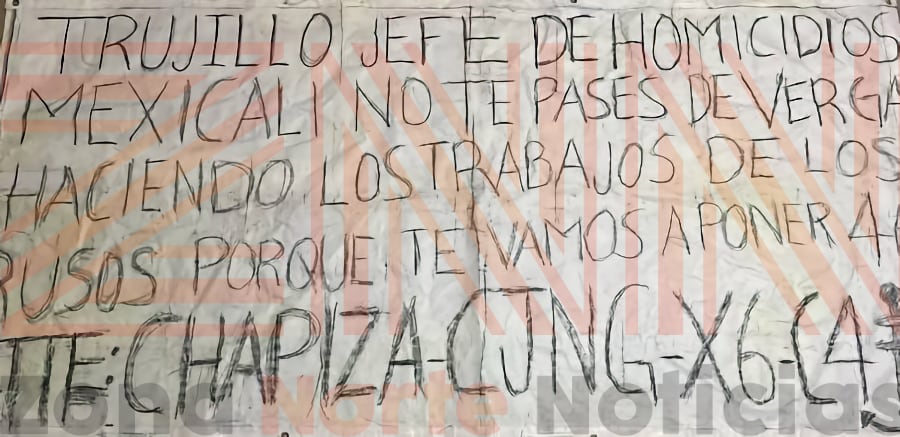 TRUJILLO JEFE DE HOMICIDIOS
MEXICALI NO TE PASES DE VERGA
HACIENDO LOS TRABAJOS DE LOS
RUSOS PORQUE TE VAMOS A PONER A
TTE: CHAPIZA-CJNG-X6-C4
Zona Norte Noticias